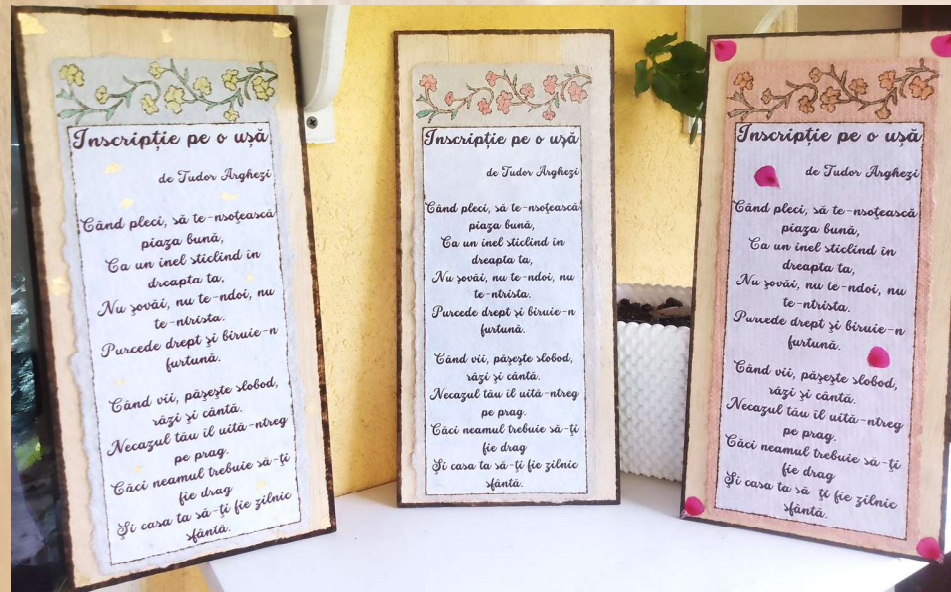 Inscripție pe o ușă
de Tudor Arghezi
Când pleci, să te-nsoțească
piaza bună,
Ca un inel sticlind în
dreapta ta.
Nu șovăi, nu te-ndoi, nu
te-ntrista.
Purcede drept și biruie-n
furtună.
Când vii, pășește slobod,
râzi și cântă.
Necazul tău îl uită-ntreg
pe prag.
Căci neamul trebuie să-ți
fie drag
Și casa ta să-ți fie zilnic
sfântă.
Inscripție pe o ușă
de Tudor Arghezi
Când pleci, să te-nsoțească
piaza bună,
Ca un inel sticlind în
dreapta ta.
Nu șovăi, nu te-ndoi, nu
te-ntrista.
Purcede drept și biruie-n
furtună.
Când vii, pășește slobod,
râzi și cântă.
Necazul tău îl uită-ntreg
pe prag.
Căci neamul trebuie să-ți
fie drag
Și casa ta să-ți fie zilnic
sfântă.
Inscripție pe o ușă
de Tudor Arghezi
Când pleci, să te-nsoțească
piaza bună,
Ca un inel sticlind în
dreapta ta,
Nu șovăi, nu te-ndoi, nu
te-ntrista.
Purcede drept și biruie-n
furtună.
Când vii, pășește slobod,
râzi și cântă.
Necazul tău îl uită-ntreg
pe prag.
Căci neamul trebuie să-ți
fie drag
Și casa ta să-ți fie zilnic
sfântă.